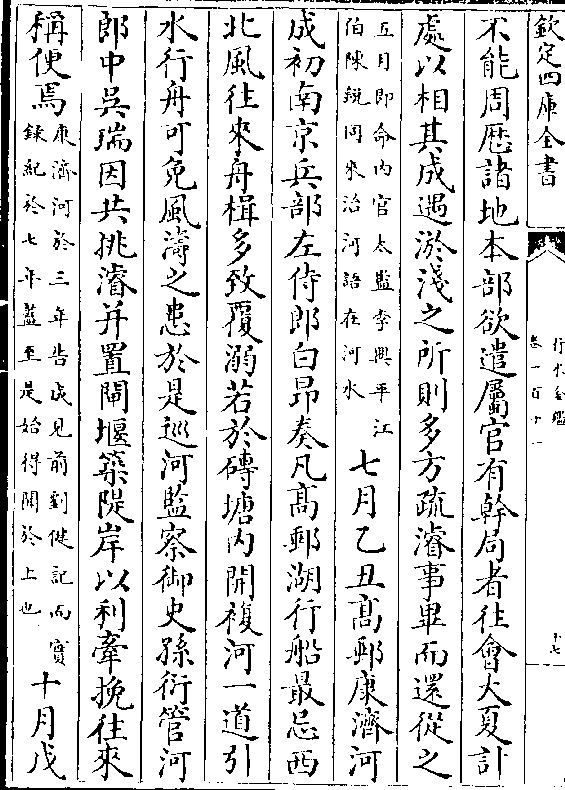 欽定四庫全書
行水金鑑
卷一百十一
十七
不能周歴諸地本部欲遣屬官有幹局者往會大夏計
處以相其成遇淤淺之所則多方疏濬事畢而還從之
五月即命内官太監李興平江
伯陳鋭同來治河語在河水
七月乙丑髙郵康濟河
成初南京兵部左侍郎白昂奏凡髙郵湖行船最忌西
北風往來舟楫多致覆溺若於磚塘内開複河一道引
水行舟可免風濤之患於是巡河監察御史孫衍管河
郎中吳瑞因共挑濬并置閘堰築隄岸以利牽挽往來
稱便焉
康濟河於三年告成見前劉健記而實
録紀於七年葢至是始得聞於上也
十月戊